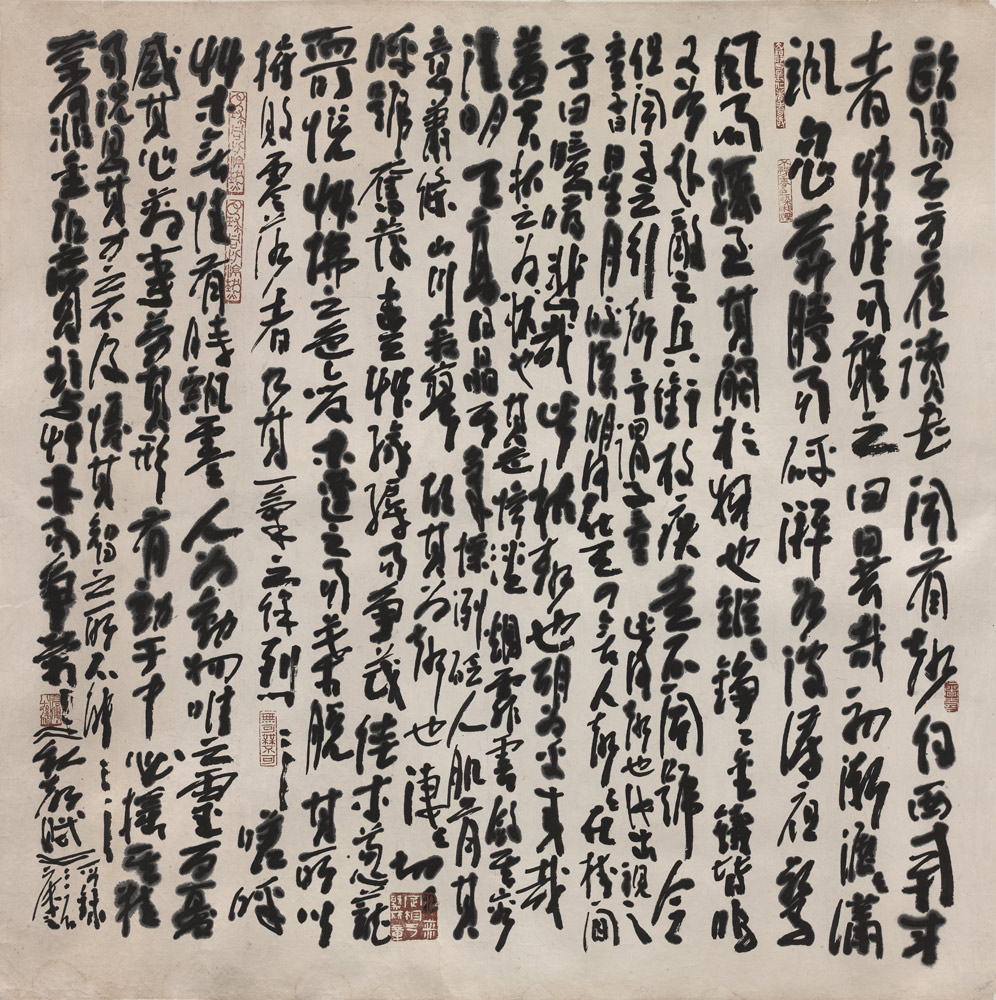 歐陽子方夜讀書聞有聲自西南來
者悚然而聽之曰異哉初淅瀝以瀟
颯忽奔騰而砰湃如波濤夜驚
風雨驟至其觸於物也鏦錚〻金鐵皆鳴
又如赴敵之兵銜枚疾走不聞號令
但聞之行聲予謂童子此何聲也汝出視之
童子曰星月皎潔明河在天四無人聲〻在樹間
予曰噫嘻悲哉此秋聲也胡為乎來哉
蓋夫秋之為狀也其色慘淡煙霏雲斂其容
清明天高日晶其氣慄冽砭人肌骨其
意蕭條山川寂寥故其為聲也淒〻切〻
呼號奮發豐草綠縟而爭茂佳木蔥蘢
而可悅草拂之色變木遭之而葉脫其所以
摧敗零落者乃其一氣之餘烈嗟呼
草木無情有時飄零人為動物惟之靈百憂
感其心萬事勞其形有動于中必搖其精
而況思其力之不及憂其智之所不能
非金石之質與草木而爭榮
秋聲賦